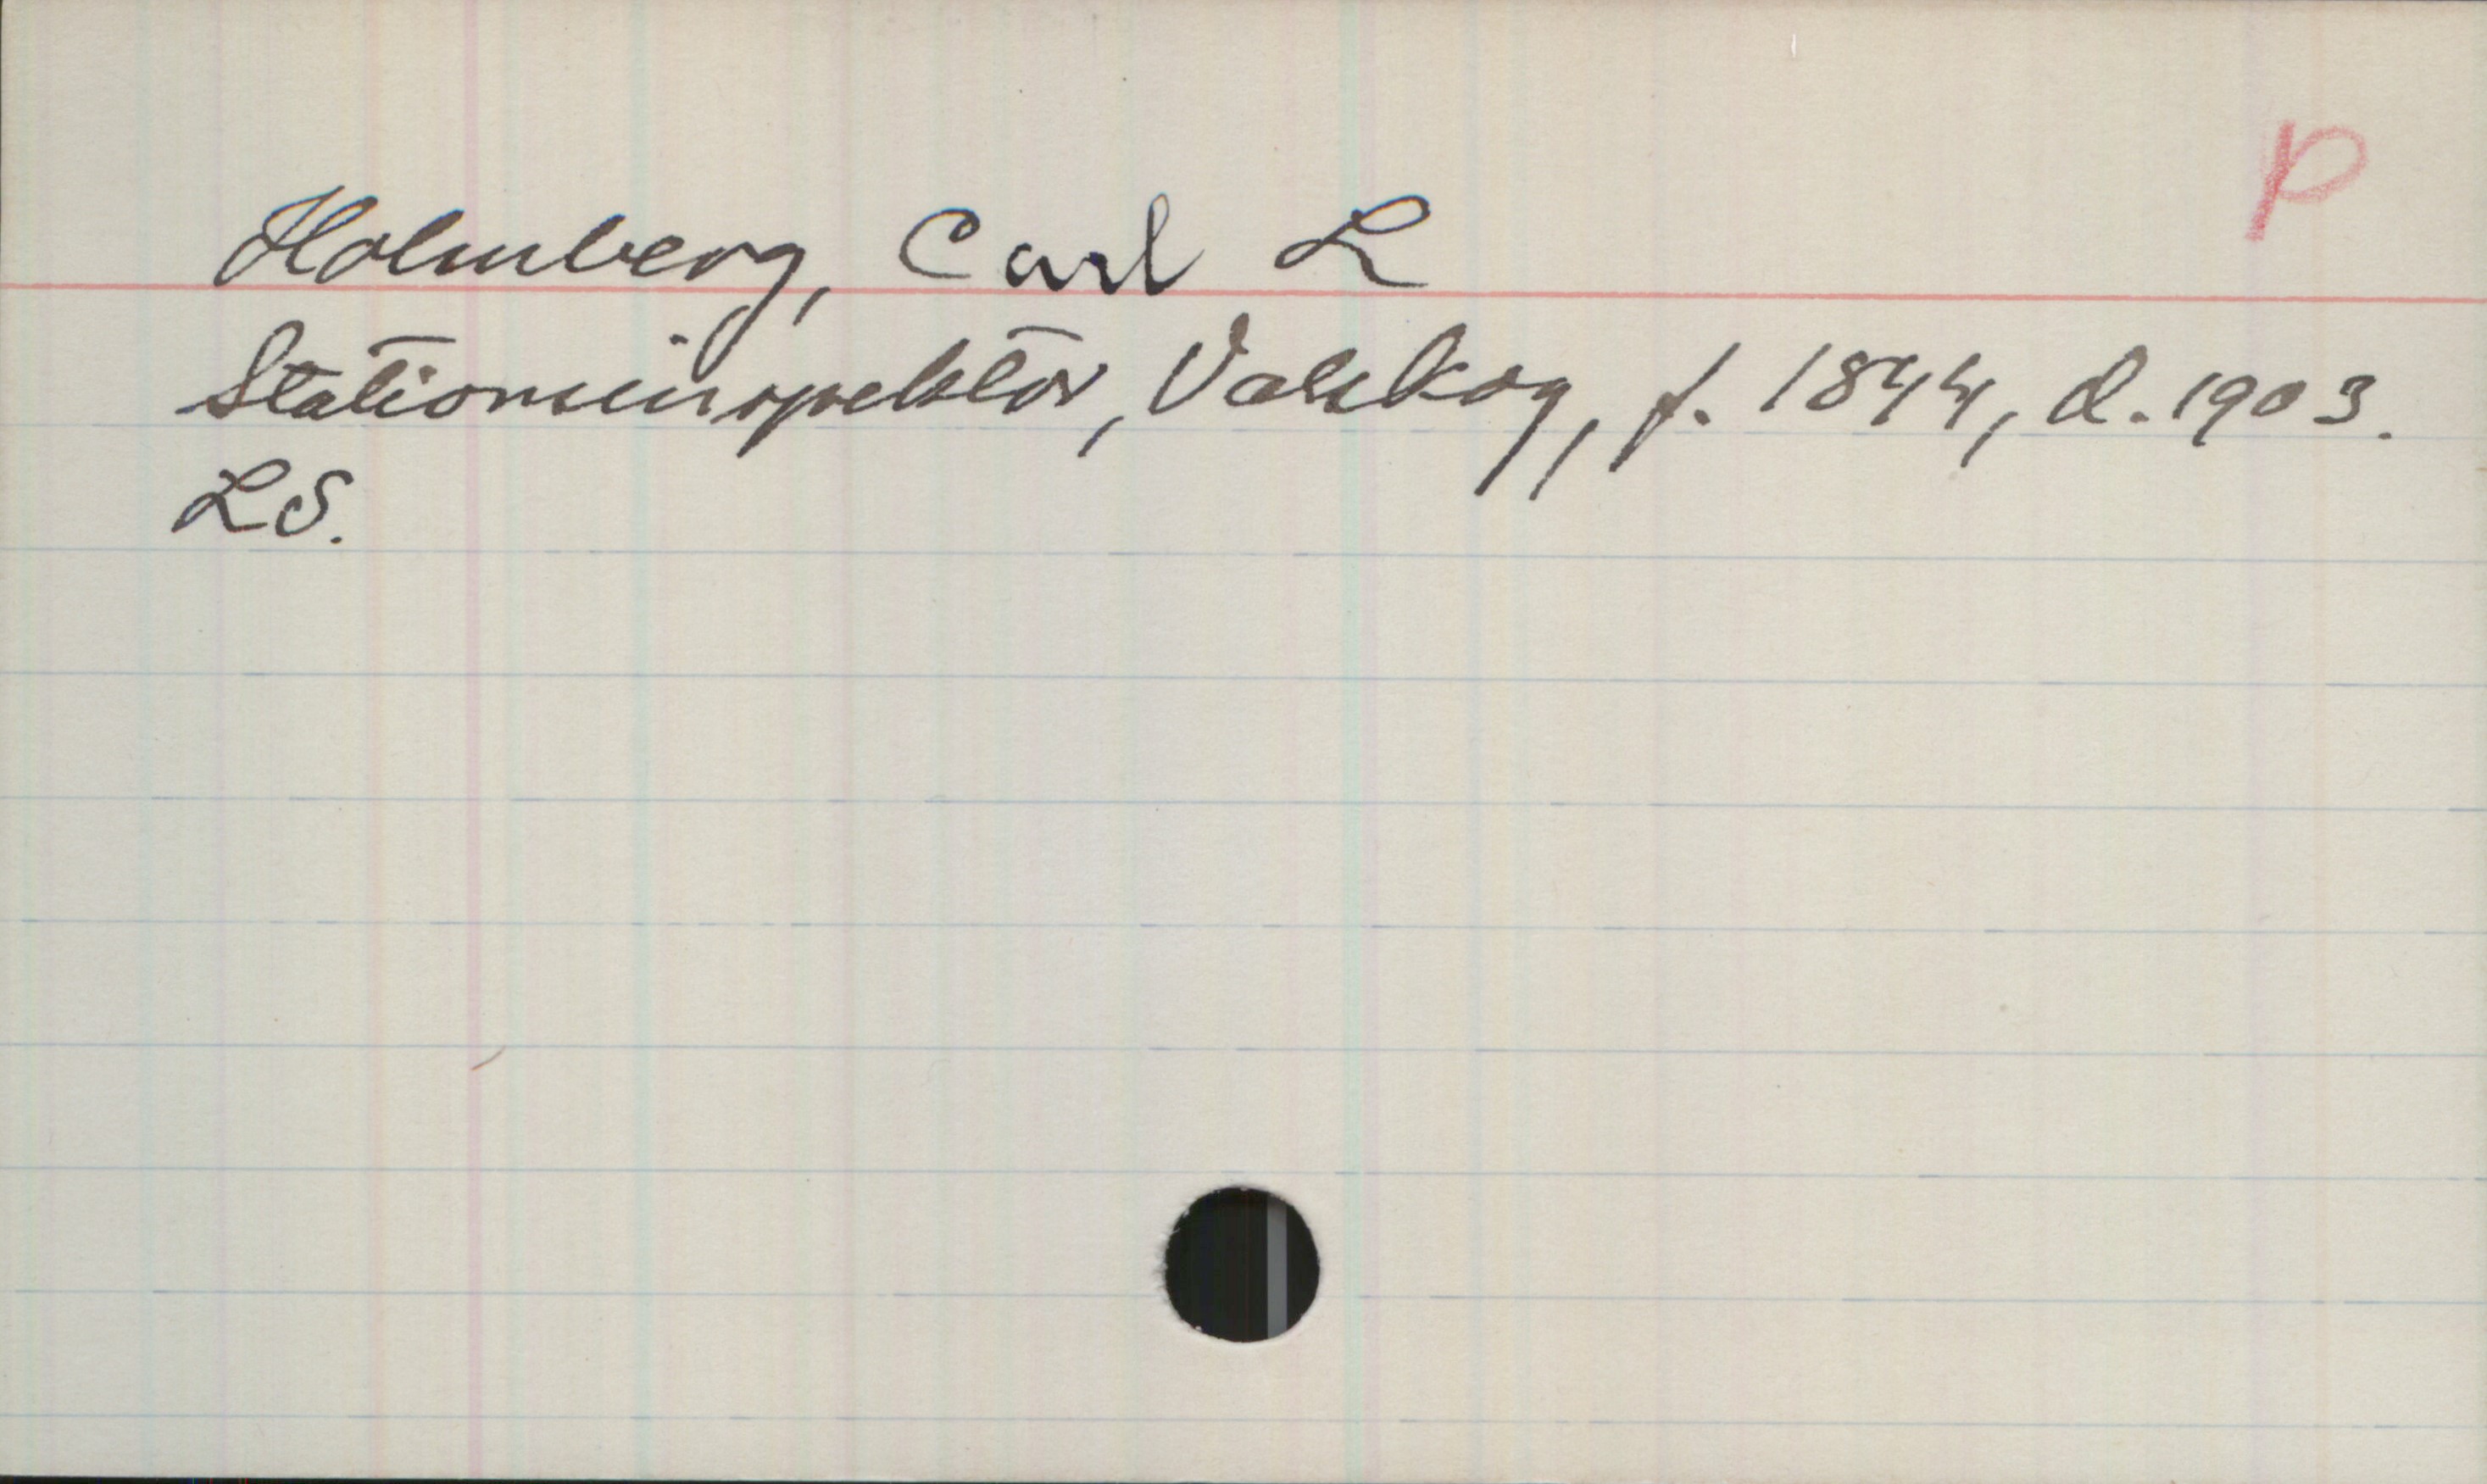 p
Holmberg, Carl L
Stationsinspektor, Valskog, f. 1844, d. 1903.
LS.